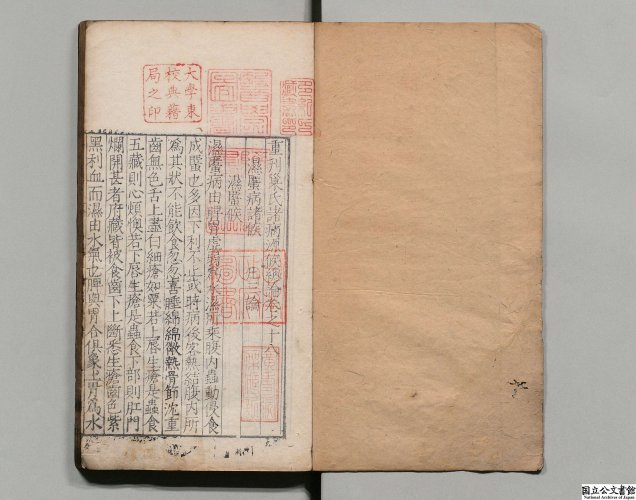 重刊巢氏諸病源候總論卷之十八
濕䘌病諸候 凡三論
濕䘌候
濕䘌病由脾胃虛弱為水濕所乘腹內蟲動侵食
成䘌也多因下利不止或時病後客熱結腹內所
為其狀不能飲食忽忽喜睡綿綿微熱骨節沈重
齒無色舌上盡白細瘡如粟若上唇生瘡是蟲食
五藏則心煩懊若下唇生瘡是蟲食下部則肛門
爛開甚者府藏皆被食齒下上齗悉生瘡齒色紫
黑利血而濕由水氣也脾與胃合俱象土胃為水
大學東
校典籍
局之印
国立公文書館
National Archives of Japan